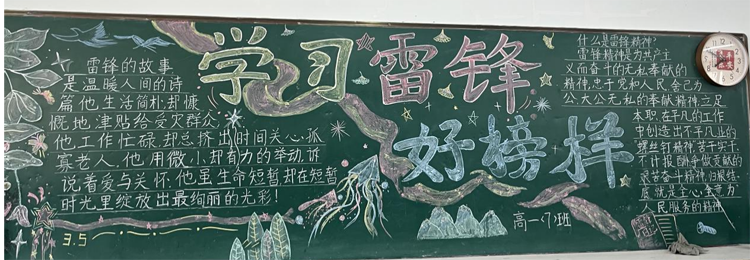 学习雷锋
好榜样
雷锋的故事
是温暖人间的诗
篇他生活简朴却慷
慨地津贴给受灾群众
他工作忙碌,却总挤出时间关心孤
寡老人.他用微小却有力的举动,诉
说着爱与关怀.他虽生命短暂,却在短暂
时光里绽放出最绚丽的光彩!
3.5
高一(7)班
什么是雷锋精神?
雷锋精神是为共产主
义而奋斗的无私奉献的
精神,忠于党和人民,舍己为
公,大公无私的奉献精神,立足
本职,在平凡的工作
中创造出不平凡业的
螺丝钉精神,苦干实干,
不计报酬,争做贡献的
艰苦奋斗精神,归根结
底就是全心全意为
人民服务的精神